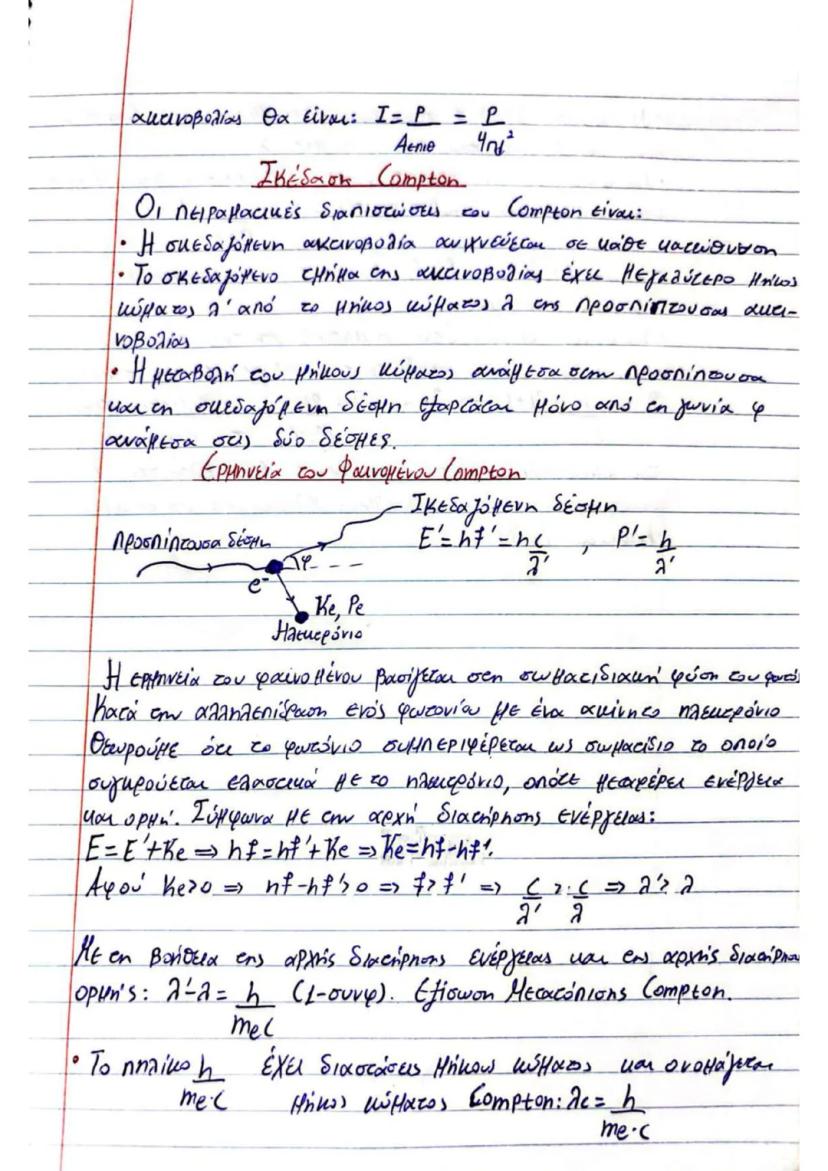 ακτινοβολίας θα είναι: I = P/Aεπιθ = P/4πd²
Σκέδαση Compton
Οι πειραματικές διαπιστώσεις του Compton είναι:
• Η σκεδαζόμενη ακτινοβολία ανιχνεύεται σε κάθε κατεύθυνση
• Το σκεδαζόμενο τμήμα της ακτινοβολίας έχει μεγαλύτερο μήκος
κύματος λ' από το μήκος κύματος λ της προσπίπτουσας ακτι-
νοβολίας
• Η μεταβολή του μήκους κύματος ανάμεσα στην προσπίπτουσα
και τη σκεδαζόμενη δέσμη εξαρτάται μόνο από τη γωνία φ
ανάμεσα στις δύο δέσμες.
Ερμηνεία του Φαινομένου Compton
Σκεδαζόμενη δέσμη
Προσπίπτουσα δέσμη
E' = hf' = hc/λ' , P' = h/λ'
φ
e⁻
Ke, Pe
Ηλεκτρόνιο
Η ερμηνεία του φαινομένου βασίζεται στη σωματιδιακή φύση του φωτός
Κατά την αλληλεπίδραση ενός φωτονίου με ένα ακίνητο ηλεκτρόνιο
Θεωρούμε ότι το φωτόνιο συμπεριφέρεται ως σωματίδιο το οποίο
συγκρούεται ελαστικά με το ηλεκτρόνιο, οπότε μεταφέρει ενέργεια
και ορμή. Σύμφωνα με την αρχή διατήρησης ενέργειας:
E = E' + Ke ⇒ hf = hf' + Ke ⇒ Ke = hf - hf'.
Αφού Ke > 0 ⇒ hf - hf' > 0 ⇒ f > f' ⇒ c/λ' > c/λ ⇒ λ' > λ
Με τη βοήθεια της αρχής διατήρησης ενέργειας και της αρχής διατήρηση
ορμής: λ' - λ = h/meC (1-συνφ). Εξίσωση Μετατόπισης Compton.
• Το πηλίκο h/me·c έχει διαστάσεις μήκους κύματος και ονομάζεται
μήκος κύματος Compton: λc = h/me·c